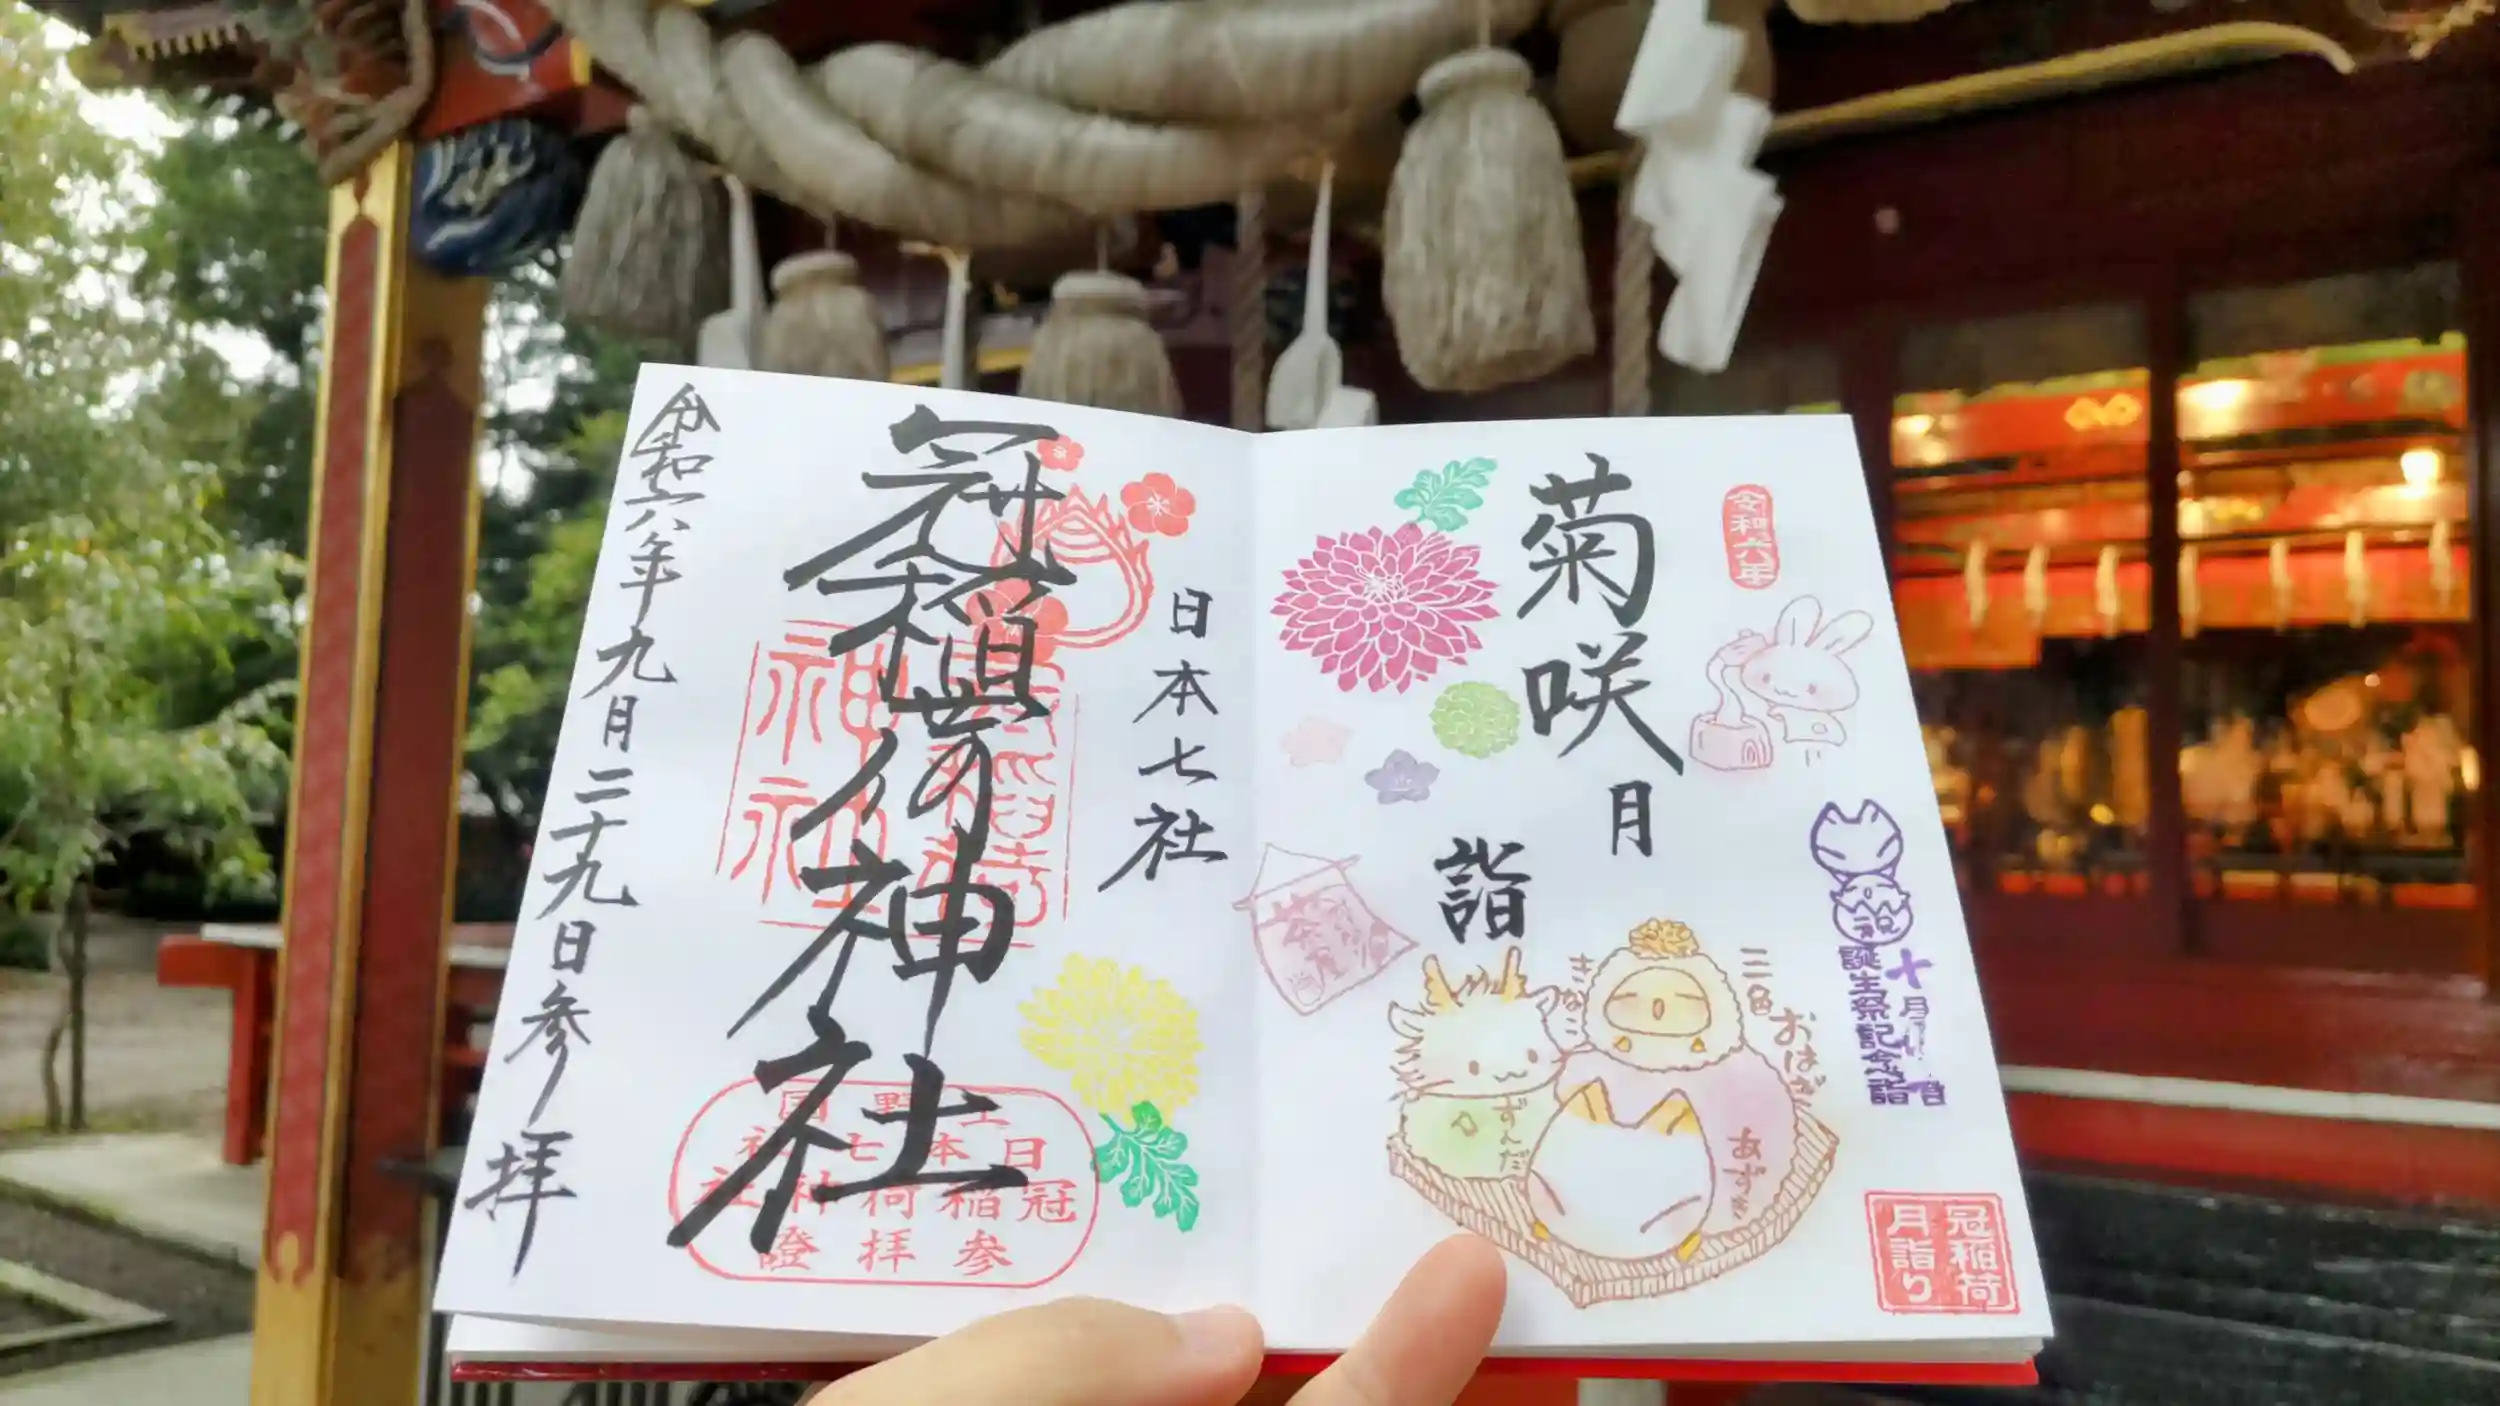 令和六年
菊咲月
詣
三色おはぎ
きなこ
ずんだ
あずき
祝
誕生祭記念詣
冠稲荷
月詣り
日本七社
冠稲荷神社
上野国
日本七社
冠稲荷神社
参拝證
令和六年九月二十九日参拝